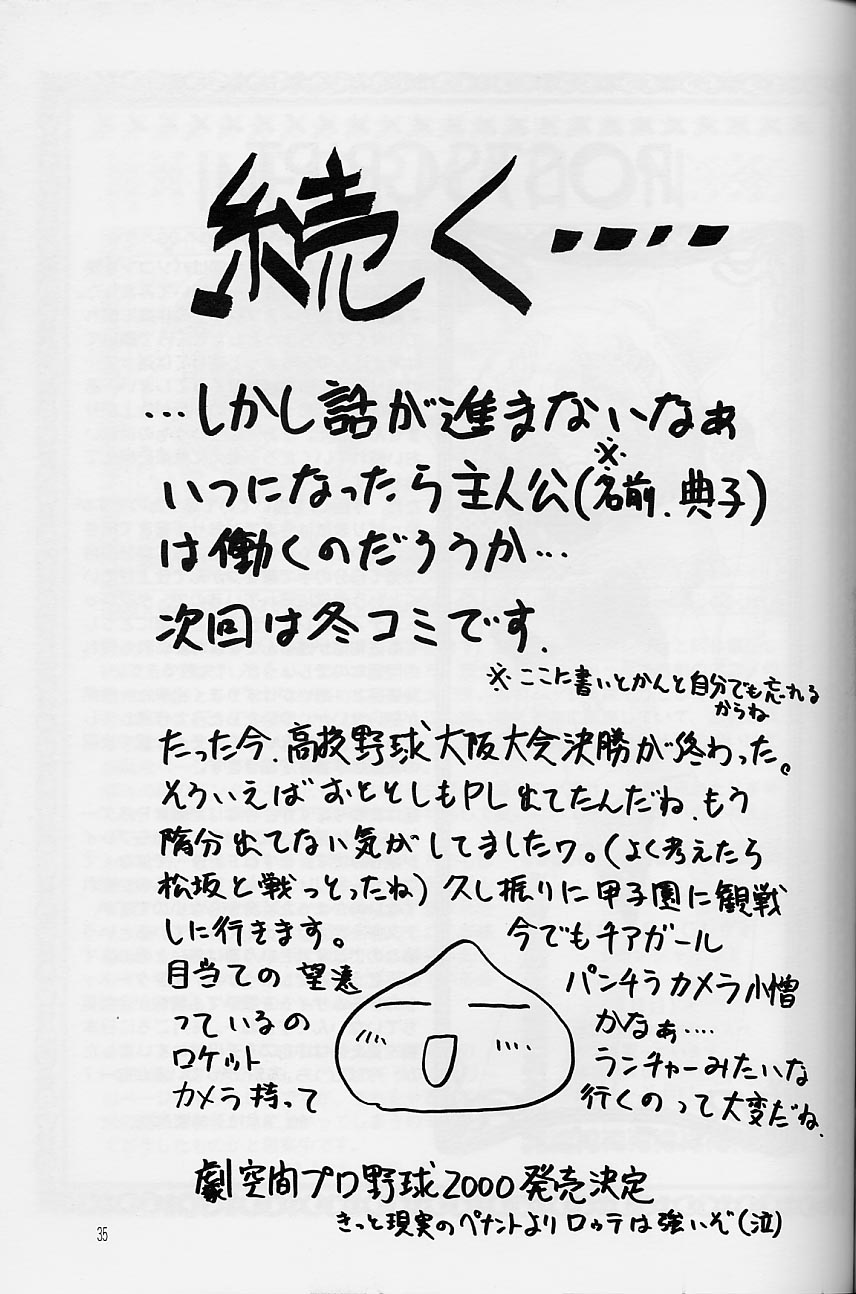 続く‥‥
…しかし話が進まないなぁ
いつになったら主人公(※名前、典子)
は働くのだろうか…
次回は冬コミです.
※ここに書いとかんと自分でも忘れる
からね
たった今、高校野球大阪大会決勝が終わった。
そういえばおととしもPL出てたんだね、もう
随分出てない気がしてましたワ。(よく考えたら
松坂と戦っとったね)久し振りに甲子園に観戦
しに行きます。
今でもチアガール
目当ての望遠
パンチラカメラ小僧
っているの
かなぁ‥‥
ロケット
ランチャーみたいな
カメラ持って
行くのって大変だね.
劇空間プロ野球2000発売決定
きっと現実のペナントよりロッテは強いぞ(泣)
35